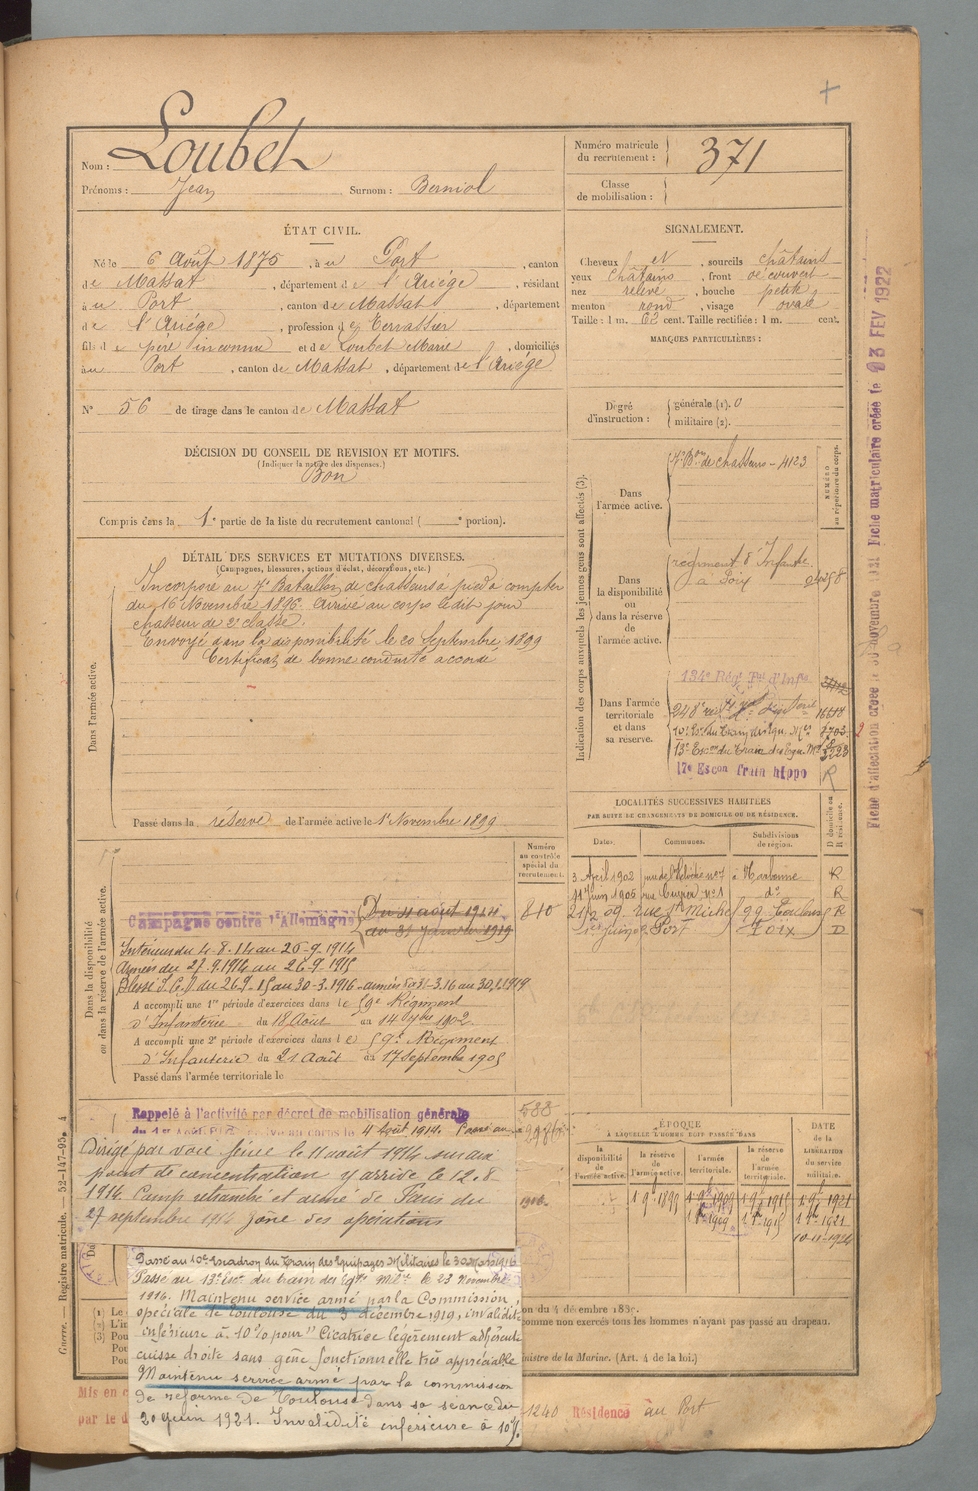 Nom : Loubet
Prénoms : Jean Surnom : Berniol
Numéro matricule du recrutement : 371
Classe de mobilisation :
ÉTAT CIVIL.
Né le 6 Août 1875, à u Port, canton
de Massat, département de l'Ariége, résidant
à u Port, canton de Massat, département
de l'Ariége, profession de Terrassier
fils de père inconnu et de Loubet Marie, domiciliés
à u Port, canton de Massat, département de l'Ariége
N° 56 de tirage dans le canton de Massat
SIGNALEMENT.
Cheveux et, sourcils châtains
yeux châtains, front découvert
nez relevé, bouche petite
menton rond, visage ovale
Taille : 1 m. 62 cent. Taille rectifiée : 1 m. cent.
MARQUES PARTICULIÈRES :
Degré d'instruction : générale (1). 0
militaire (2).
DÉCISION DU CONSEIL DE REVISION ET MOTIFS.
(Indiquer la nature des dispenses.)
Bon
Compris dans la 1e partie de la liste du recrutement cantonal ( e portion).
DÉTAIL DES SERVICES ET MUTATIONS DIVERSES.
(Campagnes, blessures, actions d'éclat, décorations, etc.)
Dans l'armée active.
Incorporé au 7e Bataillon de chasseurs à pied à compter
du 16 Novembre 1896. Arrivé au corps le dit jour
chasseur de 2e classe.
Envoyé dans la disponibilité le 20 Septembre 1899
Certificat de bonne conduite accordé
Passé dans la réserve de l'armée active le 1er Novembre 1899
Indication des corps auxquels les jeunes gens sont affectés (3).
NUMÉRO au répertoire du corps.
Dans l'armée active.
7e Bon de chasseurs - 4123
Dans la disponibilité ou dans la réserve de l'armée active.
régiment d'Infanterie
à Foix
Dans l'armée territoriale et dans sa réserve.
134e Rég. Tal d'Infie
10e Esc. du Train des Equ. Mres
13e Escon du Train des Equ. Mres
17e Escon train hippo
R
LOCALITÉS SUCCESSIVES HABITÉES
PAR SUITE DE CHANGEMENTS DE DOMICILE OU DE RÉSIDENCE.
Dates. Communes. Subdivisions de région. D domicile ou R résidence.
3 Avril 1902 à Narbonne R
11 Juin 1905 rue Cuvier n°1 do R
21/2 09 rue St Michel 99 Toulouse R
Port Foix D
Numéro au contrôle spécial du recrutement.
810
Dans la disponibilité ou dans la réserve de l'armée active.
Campagne contre l'Allemagne
Du 11 août 1914
au 31 janvier 1919
Intérieur du 4-8-14 au 26-9-1914
Armées du 27.9.1914 au 26-9-1915
Blessé du 26.9.15 au 30-3-1916 - armées du 31-3.16 au 30.1.1919
A accompli une 1re période d'exercices dans le 59e Régiment
d'Infanterie du 18 Août au 14 7bre 1902.
A accompli une 2e période d'exercices dans le 59e Régiment
d'Infanterie du 21 Août au 17 Septembre 1905
Passé dans l'armée territoriale le
Rappelé à l'activité par décret de mobilisation générale
4 Août 1914. Passé au
Dirigé par voie ferrée le 11 août 1914 sur aux
point de concentration y arrive le 12.8
1914. Camp retranché et armé de Paris du
27 septembre 1914 zone des opérations
588
1916.
Passé au 10e Escadron du Train des Equipages Militaires le 30 Mars 1916
Passé au 13e Esc. du train des Eqges Mres le 23 Novembre
1916. Maintenu service armé par la Commission,
spéciale de Toulouse du 3 décembre 1919, invalidité
inférieure à 10% pour "Cicatrice légèrement adhérente
cuisse droite sans gêne fonctionnelle très appréciable
Maintenu service armé par la commission
de réforme de Toulouse dans sa séance du
20 juin 1921. Invalidité inférieure à 10%.
ÉPOQUE
À LAQUELLE L'HOMME DOIT PASSER DANS
la disponibilité de l'armée active. la réserve de l'armée active. l'armée territoriale. la réserve de l'armée territoriale. DATE de la LIBÉRATION du service militaire.
1 9b 1899 1 9b 1909 1 9b 1915 1 9b 1921
1 8re 1909 1 8re 1915 1 8re 1921
10-11-1924
(1) Le
(2) L'in
(3) Pou
Pou
Pou
on du 4 décembre 1889.
comme non exercés tous les hommes n'ayant pas passé au drapeau.
ministre de la Marine. (Art. 4 de la loi.)
Mis en c
par le d
1240 Résidence au Port
Guerre. — Registre matricule. — 52-147-95. 4
Fiche d'affectation créée le 30 novembre 1921 Fiche matriculaire créée le 23 FEV 1922